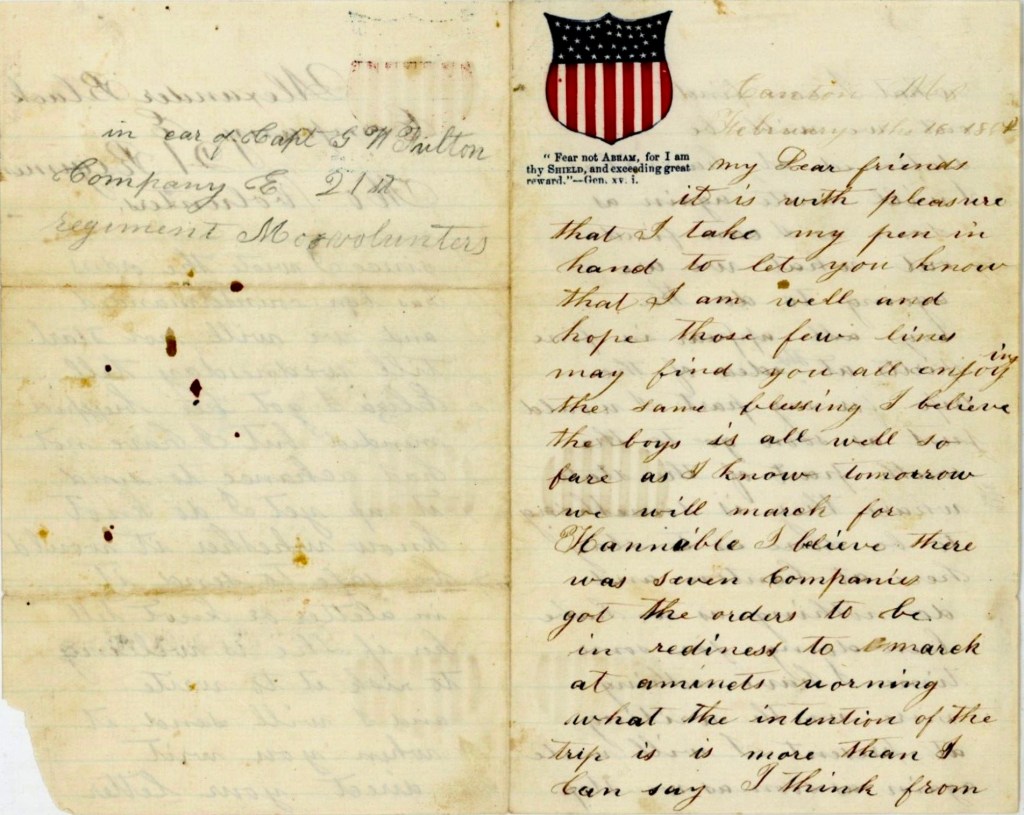 in car of Capt G W Fulton
Company E 21st
regiment Mo volunters
" Fear not ABRAM, for I am
thy SHIELD, and exceeding great
reward."—Gen. xv. i.
Canton
February the 16 186
My Dear friends
it is with pleasure
that I take my pen in
hand to let you know
that I am well and
hope those few lines
may find you all enjoying
the same blessing I believe
the boys is all well so
fare as I know tomorrow
we will march for
Hannible I believe there
was seven Companies
got the orders to be
in rediness to march
at aminets worning
what the intention of the
trip is is more than I
Can say I think from